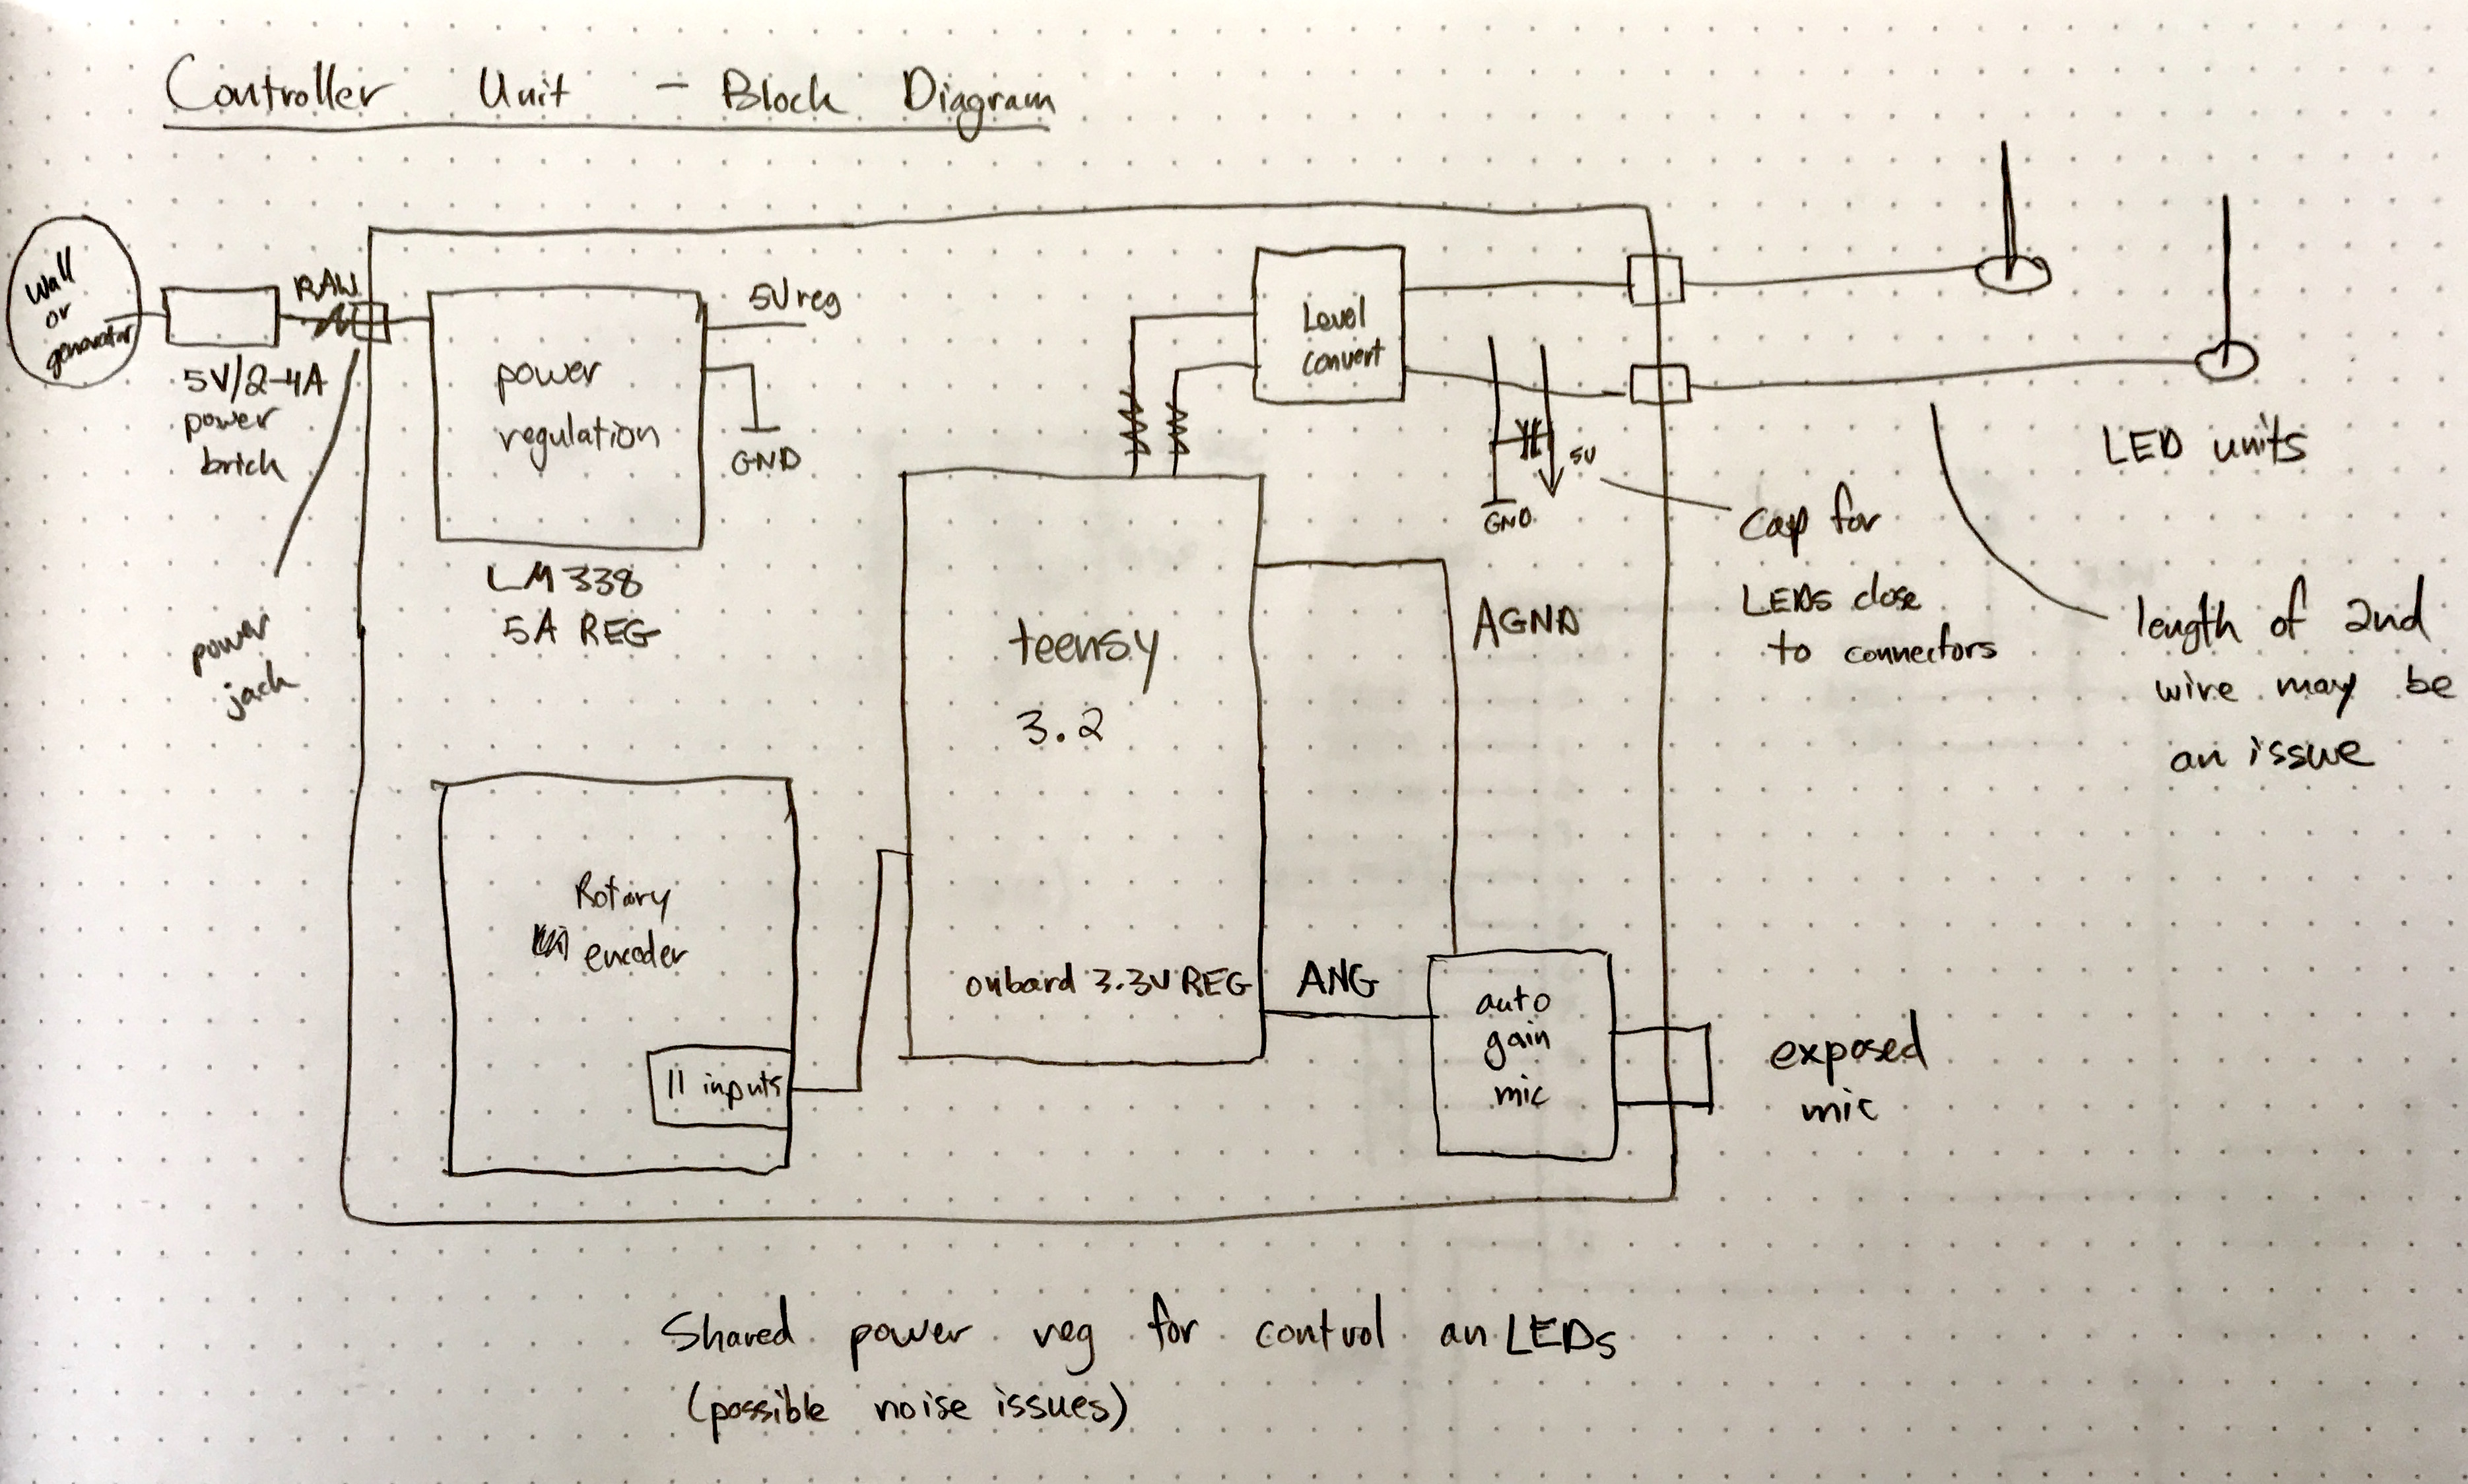 Controller Unit - Block Diagram
wall
or
generator
RAW
5V/2-4A
power
brick
power
jack
power
regulation
5V reg
GND
LM338
5A REG
Level
convert
GND
5V
Cap for
LEDs close
to connectors
LED units
length of 2nd
wire may be
an issue
teensy
3.2
onboard 3.3V REG
AGND
ANG
auto
gain
mic
exposed
mic
Rotary
encoder
11 inputs
Shared power reg for control an LEDs
(possible noise issues)